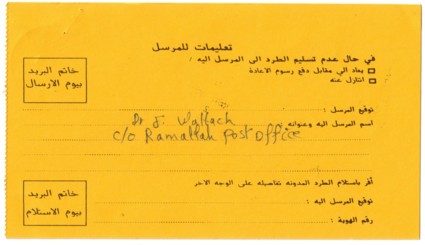 تعليمات للمرسل
في حال عدم تسليم الطرد الى المرسل اليه :
يعاد الي مقابل دفع رسوم الاعادة
اتنازل عنه
خاتم البريد
بيوم الارسال
توقيع المرسل :
اسم المرسل اليه وعنوانه
Dr J. Wallach
c/o Ramallah Post Office
أقر باستلام الطرد المدونه تفاصيله على الوجه الاخر
توقيع المرسل اليه :
رقم الهوية :
خاتم البريد
بيوم الاستلام